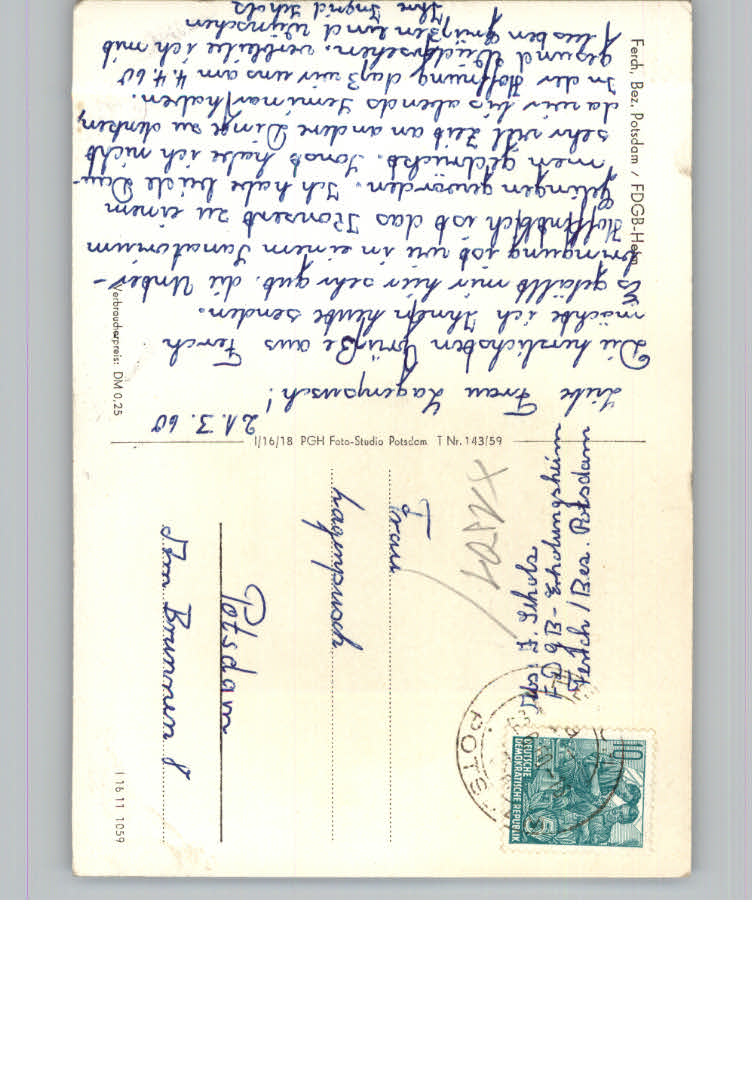 Ferch, Bez. Potsdam / FDGB-Heim
21.3.60
Liebe Frau Hagenpusch!
Die herzlichsten Grüße aus Ferch
möchte ich Ihnen heute senden.
Es gefällt mir hier sehr gut. Die Unter-
bringung ist wie in einem Sanatorium
Hoffentlich ist das Konzert zu einem
Gelingen geworden. Ich habe beide Dau-
men gedrückt. Sonst habe ich nicht
sehr viel Zeit an andere Dinge zu denken,
da wir bis abends Seminar haben.
In der Hoffnung daß wir uns am 4.4.60
gesund wiedersehen, verbleibe ich mit
besten Grüßen und Wünschen
Ihre Ingrid Scholz
Verbraucherpreis: DM 0,25
I/16/18 PGH Foto-Studio Potsdam T Nr. 143/59
Abs: I. Scholz
FDGB-Erholungsheim
Ferch/Bez. Potsdam
10
DEUTSCHE
DEMOKRATISCHE REPUBLIK
POTS
Frau
Hagenpusch
Potsdam
Am Brunnen 8
I 16 11 1059